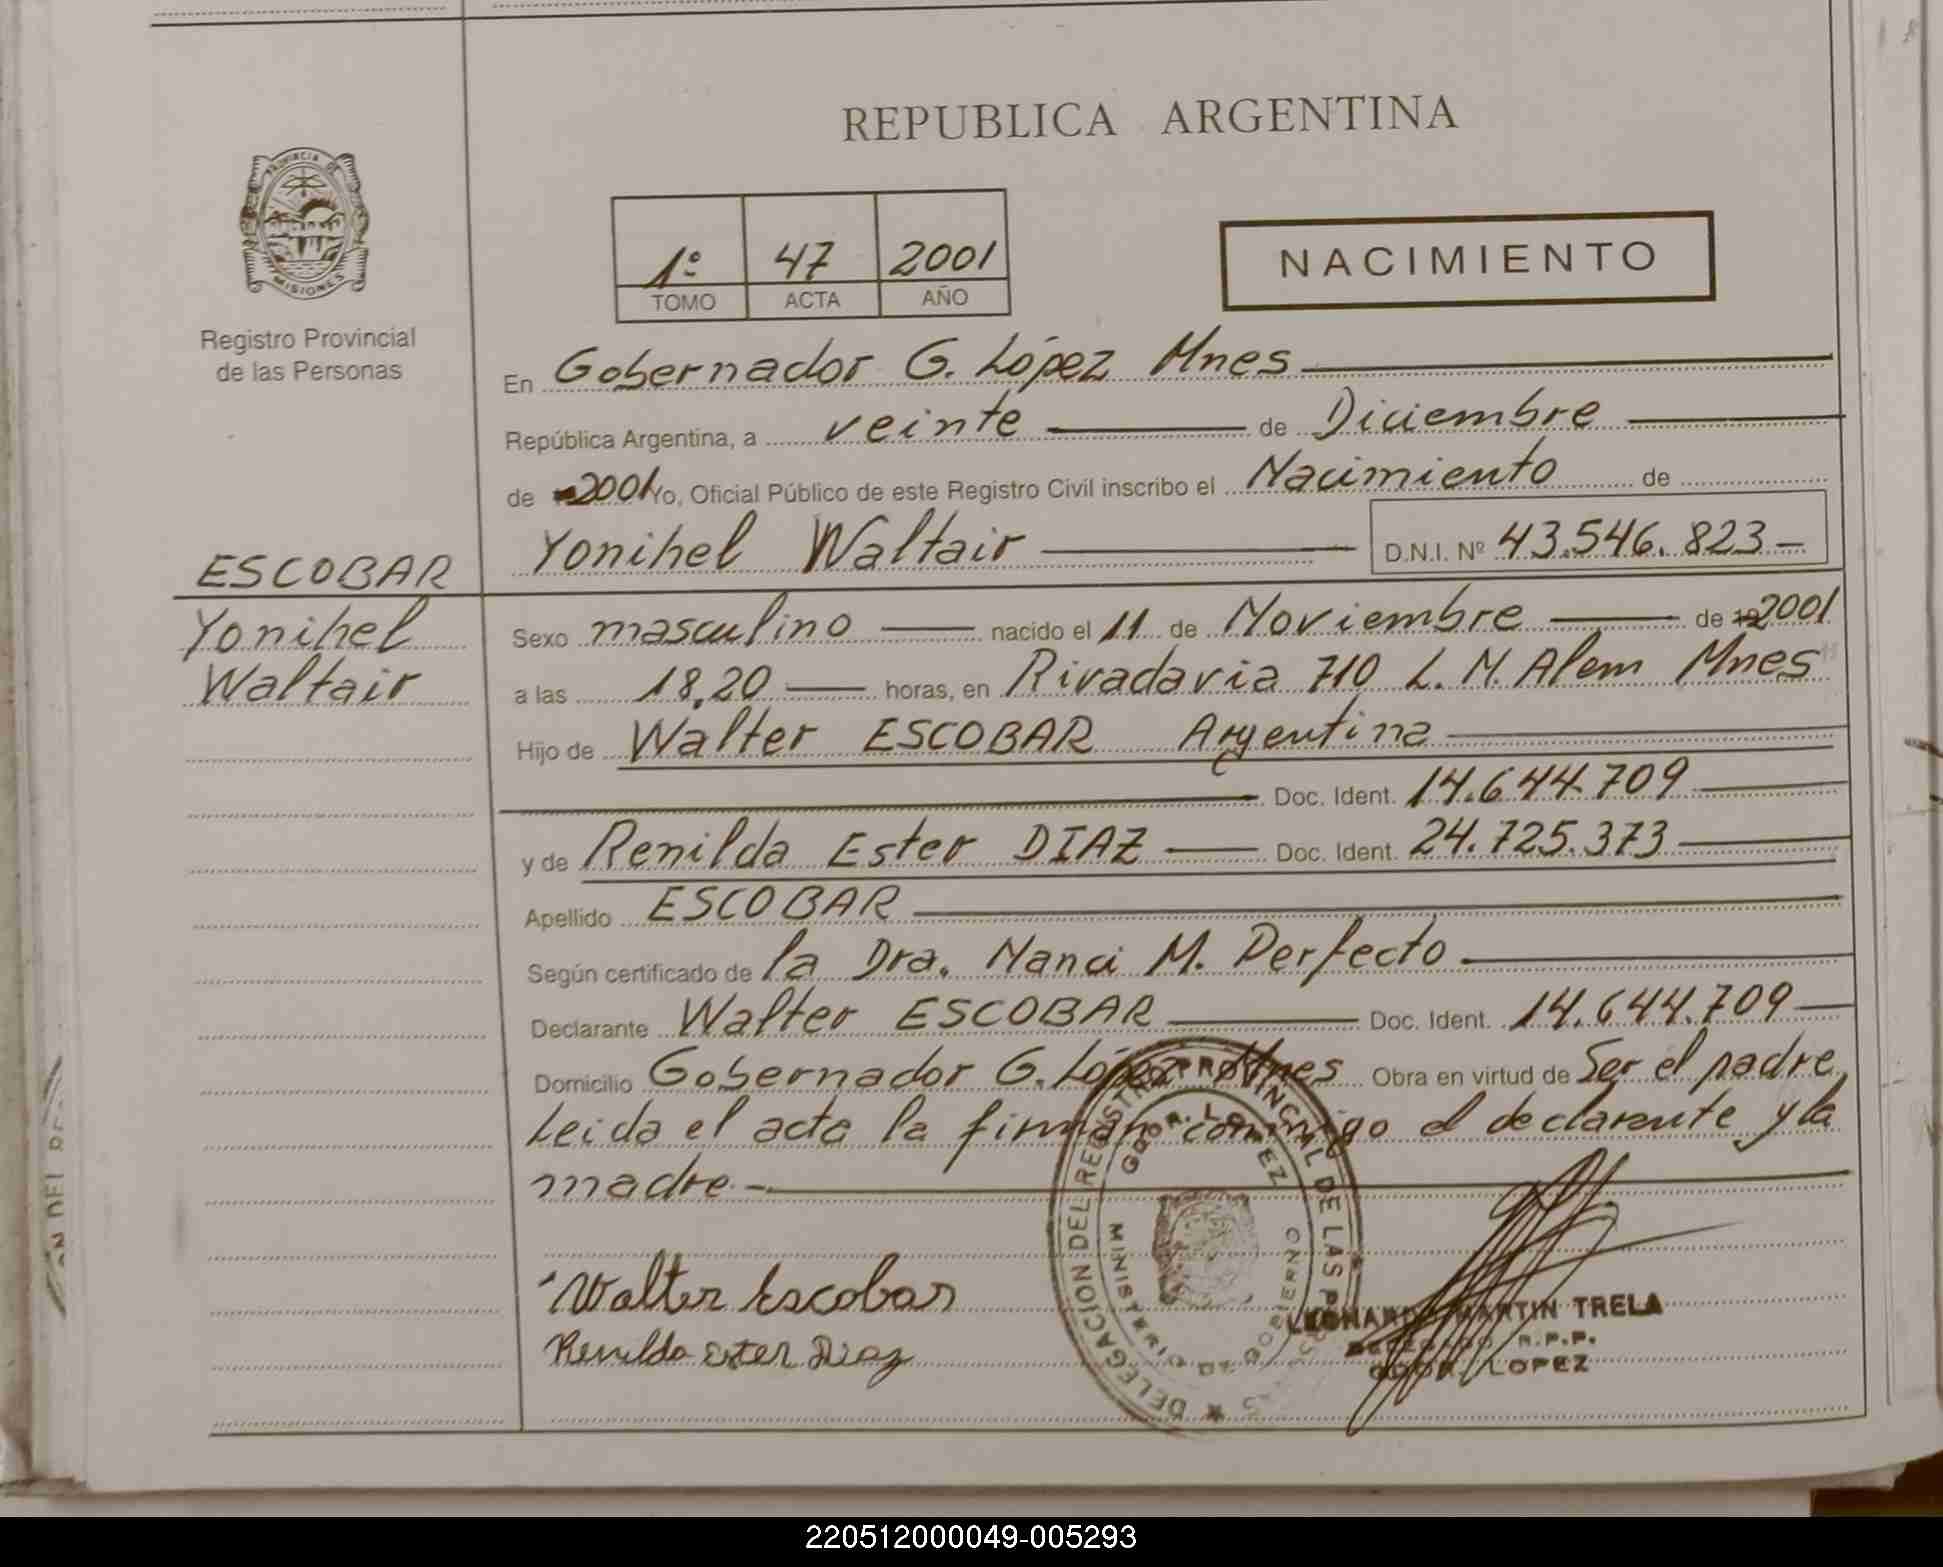 REPUBLICA ARGENTINA
PROVINCIA DE MISIONES
Registro Provincial
de las Personas
1º 47 2001
TOMO ACTA AÑO
NACIMIENTO
En Gobernador G. López Mnes
República Argentina, a veinte de Diciembre
de 2001 Yo, Oficial Público de este Registro Civil inscribo el Nacimiento de
Yonihel Waltair D.N.I. Nº 43.546.823
ESCOBAR
Yonihel
Waltair
Sexo masculino nacido el 11 de Noviembre de 2001
a las 18,20 horas, en Rivadavia 710 L. N. Alem Mnes
Hijo de Walter ESCOBAR Argentina
Doc. Ident. 14.644.709
y de Renilda Ester DIAZ Doc. Ident. 24.725.373
Apellido ESCOBAR
Según certificado de la Dra. Nanci M. Perfecto
Declarante Walter ESCOBAR Doc. Ident. 14.644.709
Domicilio Gobernador G. López Mnes Obra en virtud de Ser el padre
Leida el acta la firman conmigo el declarante y la
madre.-
Walter Escobar
Renilda Ester Diaz
DELEGACION DEL REGISTRO PROVINCIAL DE LAS
GDOR. LOPEZ
MINISTERIO DE GOBIERNO
LEONARDO MARTIN TRELA
DELEGADO R.P.P.
GDOR. LOPEZ
220512000049-005293